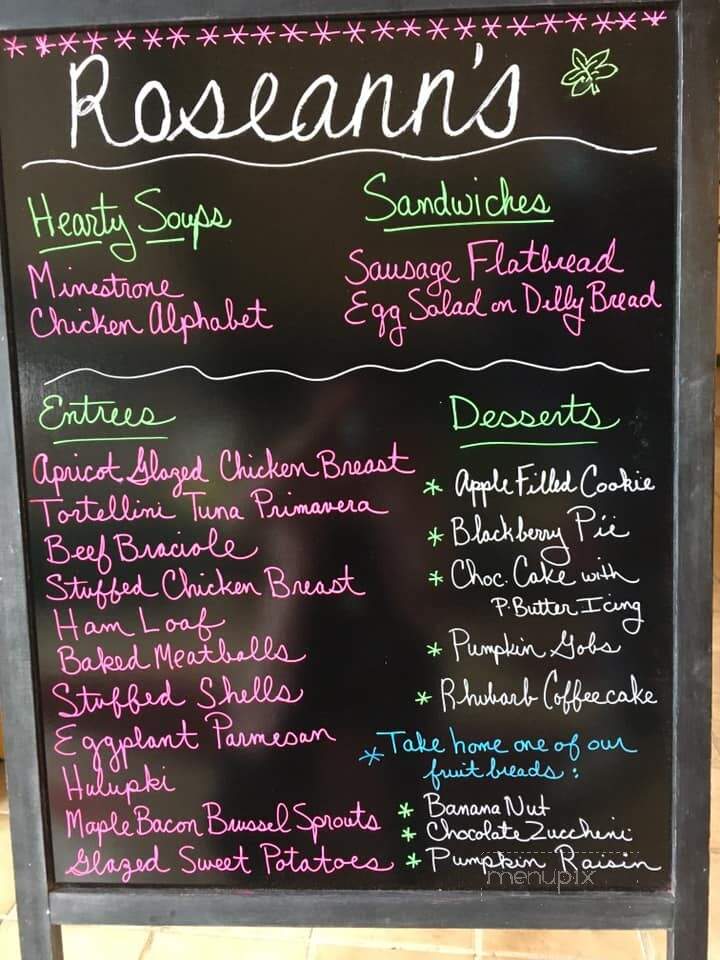 Roseann's
Hearty Soups
Minestrone
Chicken Alphabet
Sandwiches
Sausage Flatbread
Egg Salad on Dilly Bread
Entrees
Apricot Glazed Chicken Breast
Tortellini Tuna Primavera
Beef Braciole
Stuffed Chicken Breast
Ham Loaf
Baked Meatballs
Stuffed Shells
Eggplant Parmesan
Hulupki
Maple Bacon Brussel Sprouts
Glazed Sweet Potatoes
Desserts
* Apple Filled Cookie
* Blackberry Pie
* Choc. Cake with
P. Butter Icing
* Pumpkin Gobs
* Rhubarb Coffeecake
* Take home one of our
fruit breads:
* Banana Nut
* Chocolate Zucchini
* Pumpkin Raisin
menupix